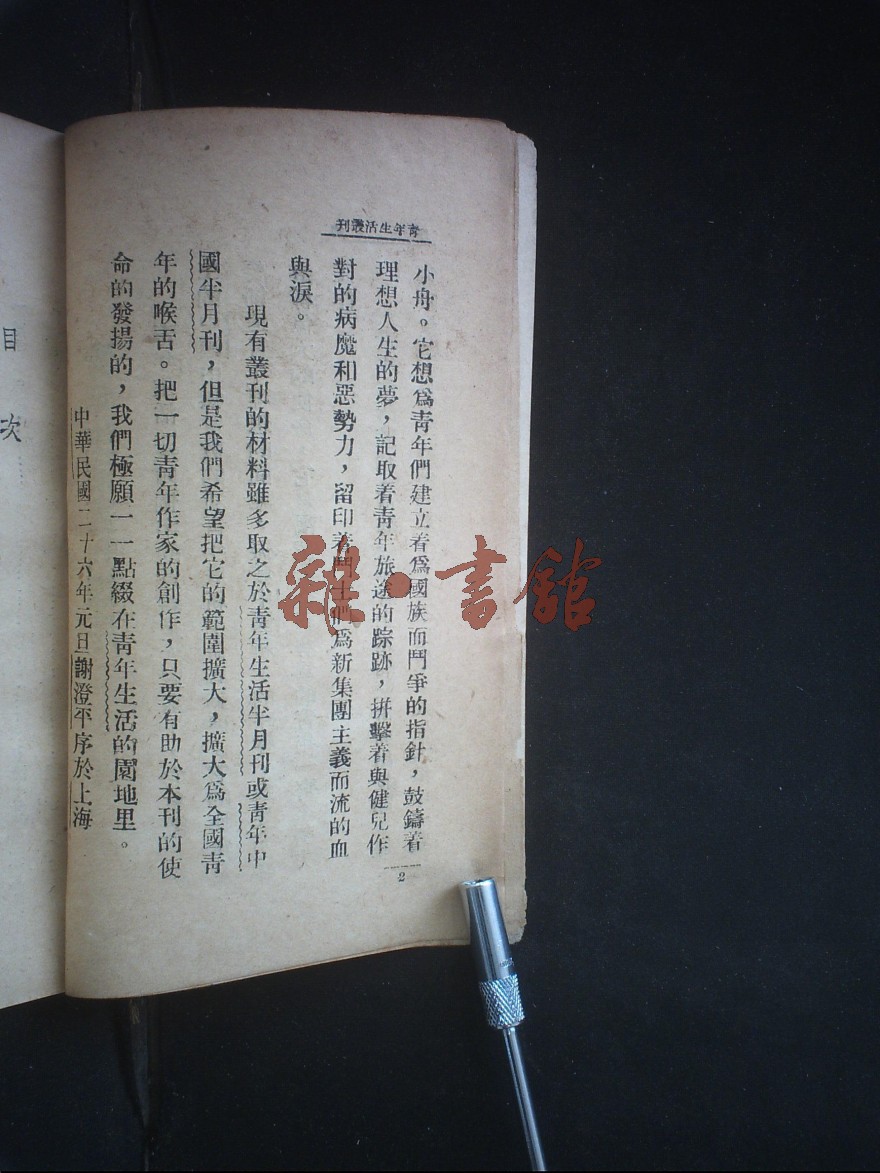 青年生活叢刊
小舟。它想爲青年們建立着爲國族而鬥爭的指針，鼓鑄着
理想人生的夢，記取着青年旅途的踪跡，拼擊着與健兒作
對的病魔和惡勢力，留印着鬥士們爲新集團主義而流的血
與淚。
現有叢刊的材料雖多取之於青年生活半月刊或青年中
國半月刊，但是我們希望把它的範圍擴大，擴大爲全國青
年的喉舌。把一切青年作家的創作，只要有助於本刊的使
命的發揚的，我們極願一一點綴在青年生活的園地里。
中華民國二十六年元旦謝澄平序於上海
2
目次
雜·書館